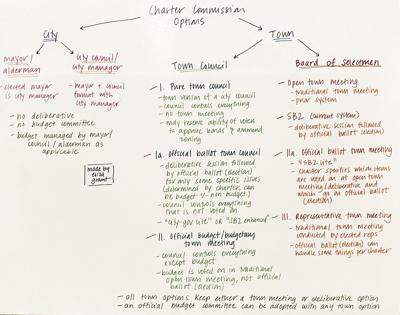 Charter Commission
Options
City
Town
mayor/
alderman
city council/
city manager
- elected mayor
is city manager
- mayor & council
format with
city manager
- no deliberative
- no budget committee
- budget managed by mayor/
council/alderman as
applicable
made by
erin
grant
Town Council
I. Pure town council
- town version of a city council
- council controls everything
- no town meeting
- may reserve ability of voters
to approve bonds & amend
zoning
Ia. Official ballot town council
- deliberative session followed
by official ballot (election)
for only some specific issues
(determined by charter; can
be budget & non-budget)
- council controls everything
that is not voted on
- "city-gov lite" or "SB2 enhanced"
II. Official budget/budgetary
town meeting
- council controls everything
except budget
- budget is voted on in traditional
open town meeting, not official
ballot (election)
Board of Selectmen
- Open town meeting
- traditional town meeting
- prior system
- SB2 (current system)
- deliberative session followed
by official ballot (election)
IIa. Official ballot town meeting
- "SB2 lite"
- charter specifies which items
are voted on at open town
meeting/deliberative and
which go on official ballot
(election)
III. Representative town meeting
- traditional town meeting
conducted by elected reps
- official ballot (election) can
handle some things per charter
- all town options keep either a town meeting or deliberative option
- an official budget committee can be adopted with any town option